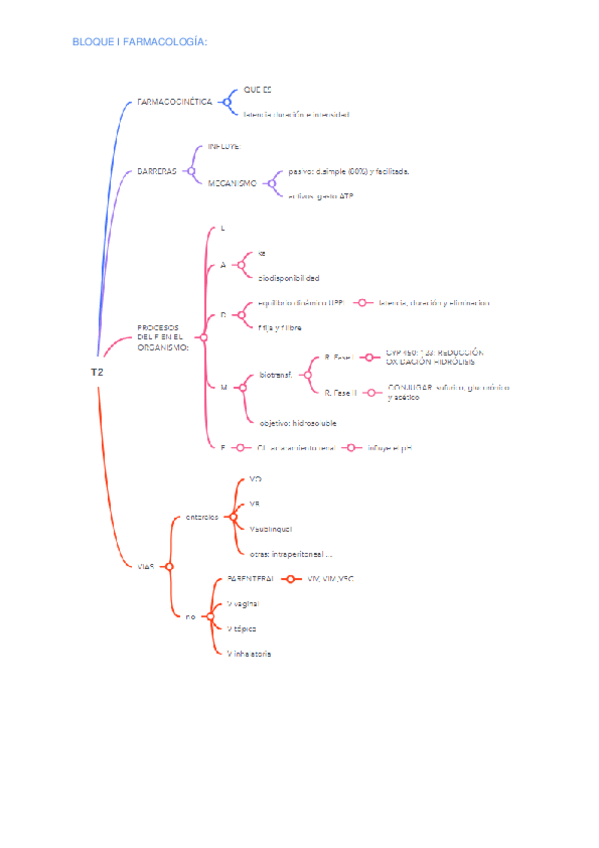 BLOQUE I FARMACOLOGÍA:
QUE ES
FARMACOCINÉTICA
latencia duración e intensidad
INFLUYE:
BARRERAS
pasivo: d.simple (90%) y facilitada.
MECANISMO
activos: gasto ATP
L
ka
A
biodisponibilidad
equilibrio dinámico UPP!
latencia, duración y eliminacion
D
f fija y f libre
PROCESOS
DEL F EN EL
ORGANISMO:
R. Fase I
REDUCCIÓN
OXIDACIÓN HIDRÓLISIS
biotransf.
T2
R. Fase II
CONJUGAR: sulfúrico, glucurónico
y acético
M
objetivo: hidrosoluble
E
aclaramiento renal
influye el pH
VO
VR
enterales
Vsublingual
otras: intraperitoneal ...
VIAS
PARENTERAL
VIV, VIM, VSC
V vaginal
no
V tópica
V inhalatoria